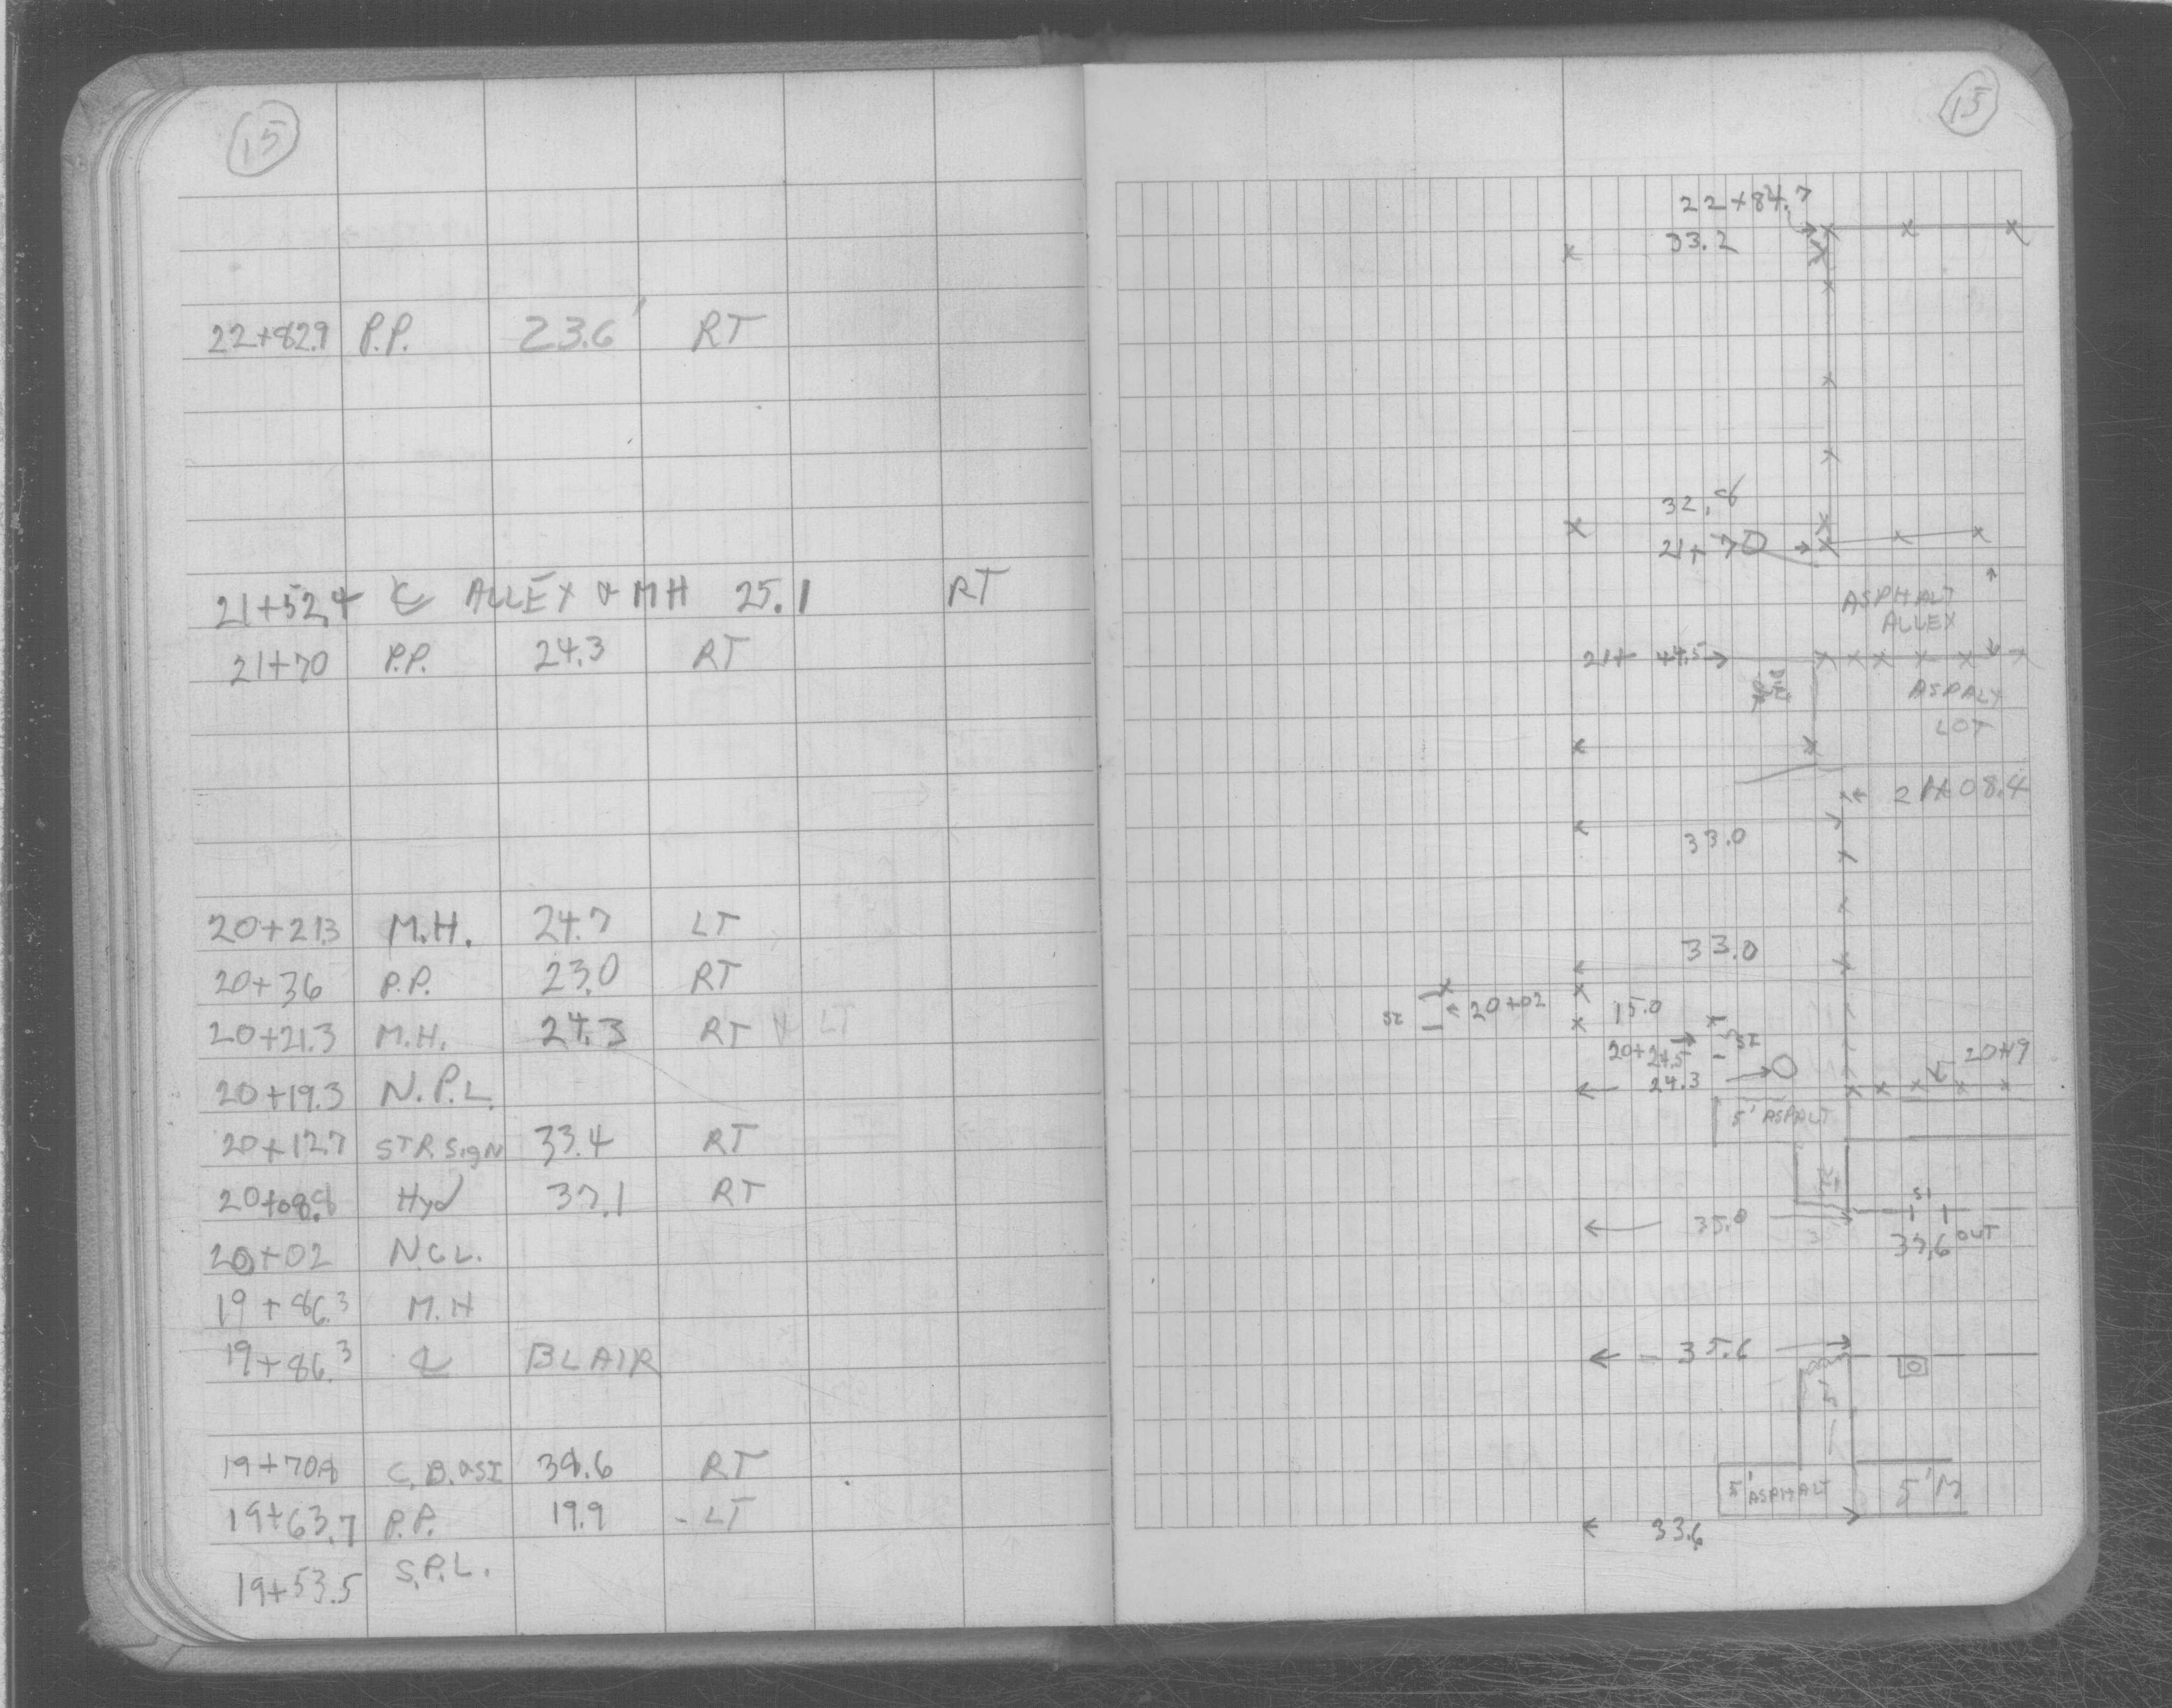 15
22+82.9 P.P. 23.6' RT
21+52.4 ℄ ALLEY & MH 25.1 RT
21+70 P.P. 24.3 RT
20+21.3 M.H. 24.7 LT
20+36 P.P. 23.0 RT
20+21.3 M.H. 24.3 RT LT
20+19.3 N.P.L.
20+12.7 STR. SigN 33.4 RT
20+08.8 Hyd 37.1 RT
20+02 NCL.
19+86.3 M.H
19+86.3 ℄ BLAIR
19+70.8 C.B. & SI 38.6 RT
19+63.7 P.P. 19.9 - LT
19+53.5 S.P.L.
15
22+84.7
33.2
32.8
21+70
ASPHALT
ALLEY
21+ 44.5
ASPALT
LOT
21+08.4
33.0
33.0
SI 20+02
15.0
20+24.5 SI
24.3
20+19
5' ASPALT
35.8
SI
37.6 OUT
35.6
5' ASPHALT 5' M
33.6